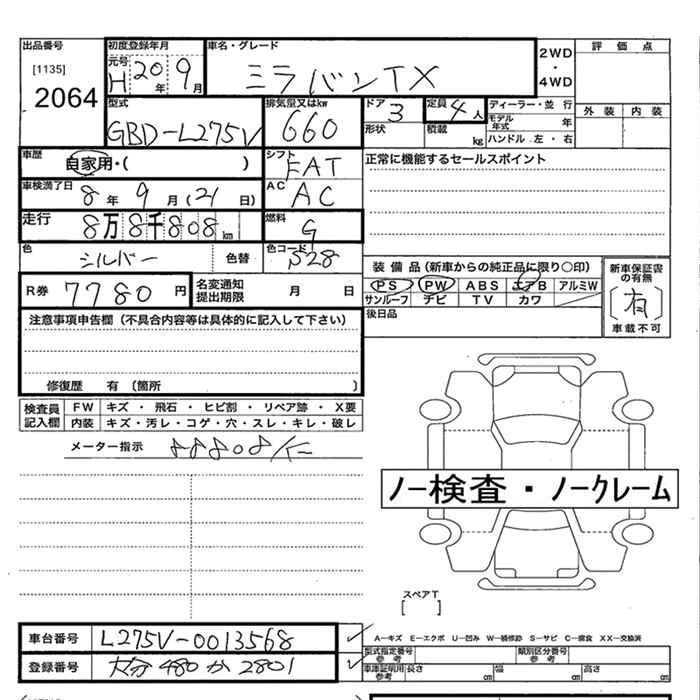 出品番号 初度登録年月 車名・グレード 評価点
[1135] 元号 H 20年 9月 ミラバンTX 2WD・4WD
2064 外装 内装
型式 排気量又はkw ドア 3 定員 4人 ディーラー・並行
GBD-L275V 660 形状 積載 kg モデル年式 年
ハンドル 左・右
車歴 自家用・( ) シフト FAT 正常に機能するセールスポイント
車検満了日 8年 9月(21日) AC AC
走行 8万8千808km 燃料 G
色 シルバー 色替 色コード S28
装備品(新車からの純正品に限り〇印) 新車保証書の有無
R券 7780円 名変通知提出期限 月 日 PS PW ABS エアB アルミW [有]
サンルーフ ナビ TV カワ 車載不可
注意事項申告欄(不具合内容等は具体的に記入して下さい) 後日品
修復歴 有(箇所 )
検査員記入欄 FW キズ・飛石・ヒビ割・リペア跡・X要
内装 キズ・汚レ・コゲ・穴・スレ・キレ・破レ
メーター指示 88808/K
ノー検査・ノークレーム
スペアT
[ ]
車台番号 L275V-0013568 A−キズ E−エクボ U−凹み W−補修跡 S−サビ C−腐食 XX−交換済
型式指定番号 参考 類別区分番号 参考
登録番号 大分 480 か 2801 車庫証明用参考 長さ cm 幅 cm 高さ cm